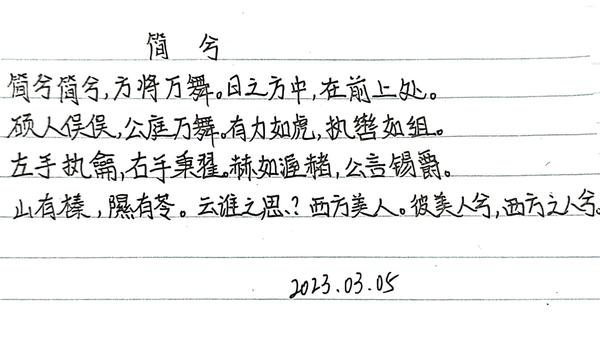 简兮
简兮简兮,方将万舞。日之方中,在前上处。
硕人俣俣,公庭万舞。有力如虎,执辔如组。
左手执龠,右手秉翟。赫如渥赭,公言锡爵。
山有榛,隰有苓。云谁之思?西方美人。彼美人兮,西方之人兮。
2023.03.05